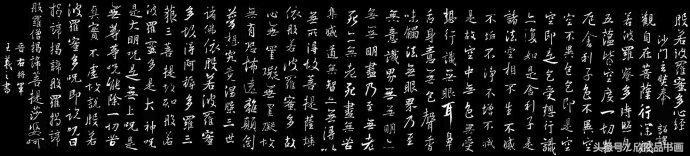 般若波羅蜜多心經
沙門玄奘奉 詔譯
觀自在菩薩行深般
若波羅蜜多時照見
五蘊皆空度一切苦
厄舍利子色不異空
空不異色色即是空
空即是色受想行識
亦復如是舍利子是
諸法空相不生不滅
不垢不淨不增不減
是故空中無色無受
想行識無眼耳鼻
舌身意無色聲香
味觸法無眼界乃至
無意識界無無明亦
無無明盡乃至無老
死亦無老死盡無苦
集滅道無智亦無得
以無所得故菩提薩埵
依般若波羅蜜多故
心無罣礙無罣礙故
無有恐怖遠離顛倒
夢想究竟涅槃三世
諸佛依般若波羅蜜
多故得阿耨多羅三
藐三菩提故知般若
波羅蜜多是大神咒
是大明咒是無上咒是
無等等咒能除一切苦
真實不虛故說般若
波羅蜜多咒即說咒曰
揭諦揭諦般羅揭諦
般羅僧揭諦菩提莎婆呵
晉右將軍
王羲之書
头条号